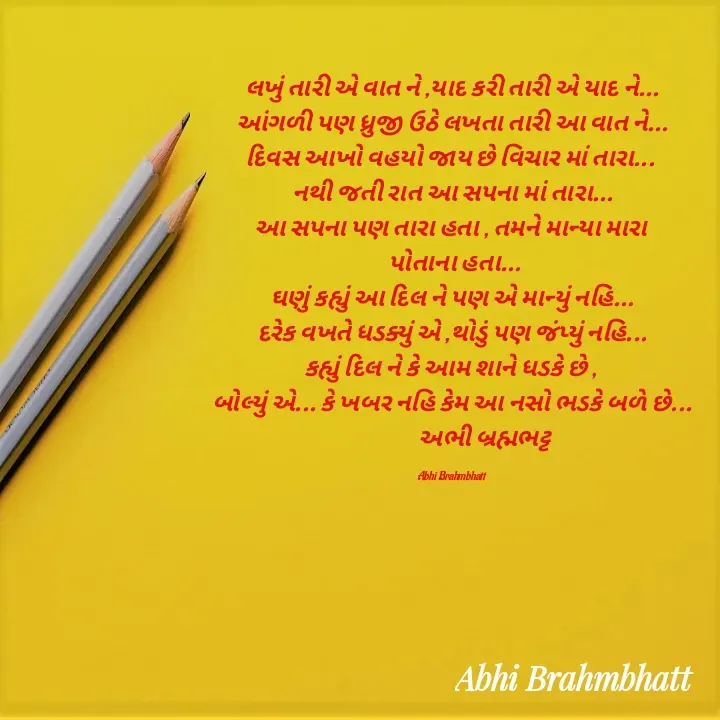 લખું તારી એ વાત ને ,યાદ કરી તારી એ યાદ ને...
આંગળી પણ ધ્રુજી ઉઠે લખતા તારી આ વાત ને...
દિવસ આખો વહયો જાય છે વિચાર માં તારા...
નથી જતી રાત આ સપના માં તારા...
આ સપના પણ તારા હતા , તમને માન્યા મારા
પોતાના હતા...
ઘણું કહ્યું આ દિલ ને પણ એ માન્યું નહિ...
દરેક વખતે ધડક્યું એ ,થોડું પણ જંપ્યું નહિ...
કહ્યું દિલ ને કે આમ શાને ધડકે છે ,
બોલ્યું એ... કે ખબર નહિ કેમ આ નસો ભડકે બળે છે...
અભી બ્રહ્મભટ્ટ
Abhi Brahmbhatt
Abhi Brahmbhatt